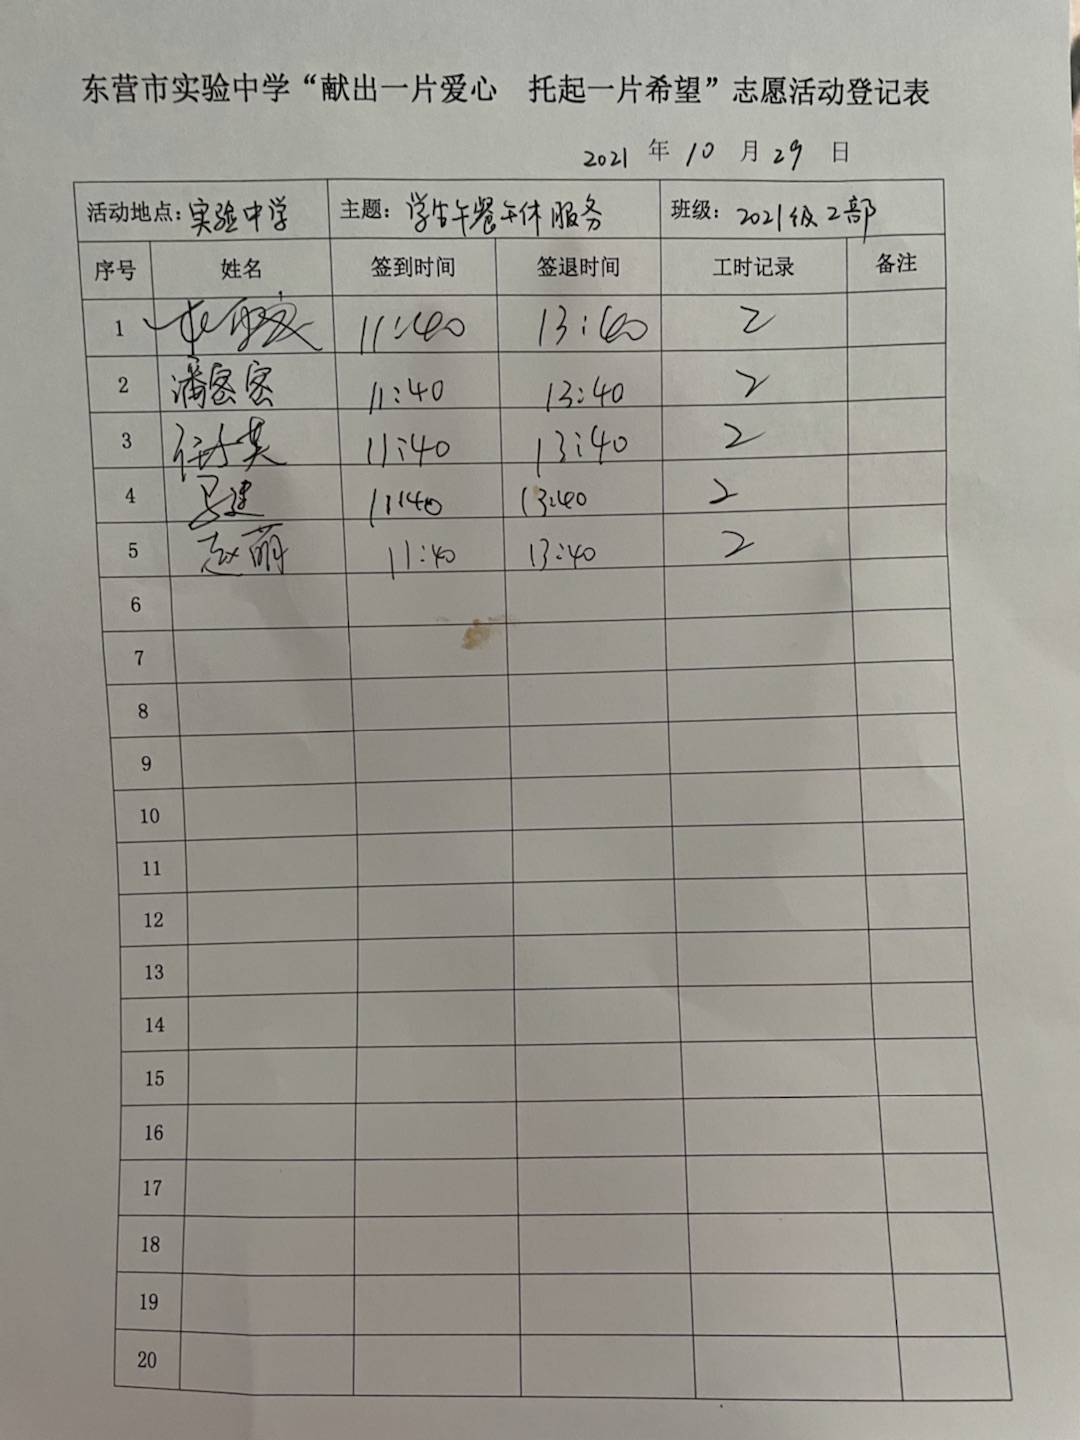 东营市实验中学“献出一片爱心 托起一片希望”志愿活动登记表
2021 年 10 月 29 日
活动地点：实验中学 主题：学生午餐午休服务 班级：2021级2部
序号 姓名 签到时间 签退时间 工时记录 备注
1 11:40 13:40 2
2 潘密密 11:40 13:40 2
3 11:40 13:40 2
4 11:40 13:40 2
5 赵萌 11:40 13:40 2
6
7
8
9
10
11
12
13
14
15
16
17
18
19
20